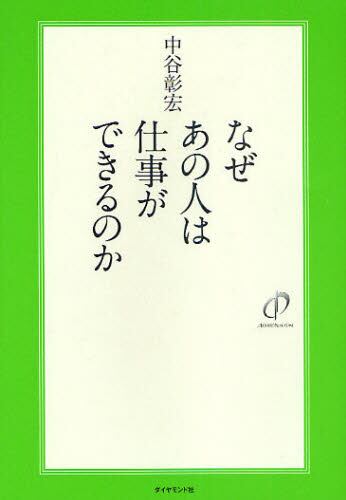 なぜ
あの人は
仕事が
できるのか
中谷彰宏
ダイヤモンド社